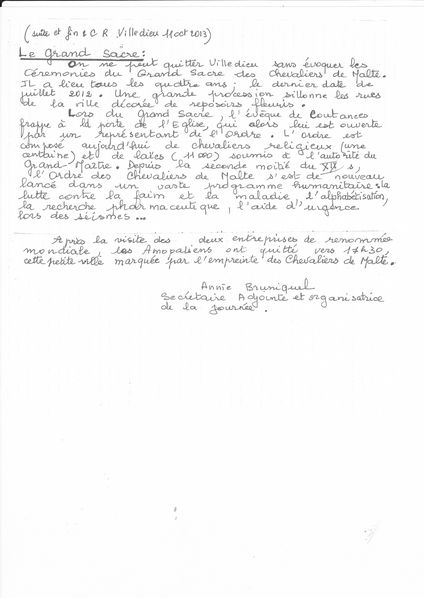 (suite et fin du C R Villedieu 11 oct 2013)
Le Grand Sacre:
On ne peut quitter Villedieu sans évoquer les
Cérémonies du Grand Sacre des Chevaliers de Malte.
Il a lieu tous les quatre ans; le dernier date de
juillet 2012. Une grande procession sillonne les rues
de la ville décorée de reposoirs fleuris.
Lors du Grand Sacre, l'évêque de Coutances
frappe à la porte de l'Eglise, qui alors lui est ouverte
par un représentant de l'Ordre. L'ordre est
composé aujourd'hui de chevaliers religieux (une
centaine) et de laïcs (11000) soumis à l'autorité du
Grand-Maître. Depuis la seconde moitié du XIX s,
l'Ordre des Chevaliers de Malte s'est de nouveau
lancé dans un vaste programme humanitaire: la
lutte contre la faim et la maladie, l'alphabétisation,
la recherche pharmaceutique, l'aide d'urgence
lors des séismes...
Après la visite des deux entreprises de renommée
mondiale, les Amopaliens ont quitté vers 17h30,
cette petite ville marquée par l'empreinte des Chevaliers de Malte.
Annie Bruniquel
Secrétaire Adjointe et organisatrice
de la journée.